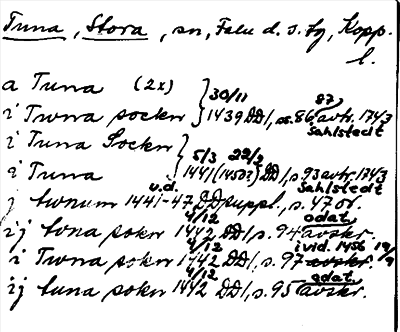 Tuna, Stora, sn, Falu d. s. fg, Kopp.
l.
a Tuna (2x)
i Twna sockn } 30/11 1439 DD 1, s. 86 87 avtr. 1743 Sahlstedt
i Tuna Sockn
i Tuna } 5/3 22/2 1441 (1450?) DD 1, s. 93 avtr. 1743 Sahlstedt
j twnum u.d. 1441-47 DD suppl., s. 47 or.
i ij tona sokn 4/12 1442 DD 1, s. 94 odat. avskr.
i Twna sokn 4/12 1442 DD 1, s. 97 avskr. i vid. 1456 19/9
ij tuna sokn 4/12 1442 DD 1, s. 95 odat. avskr.